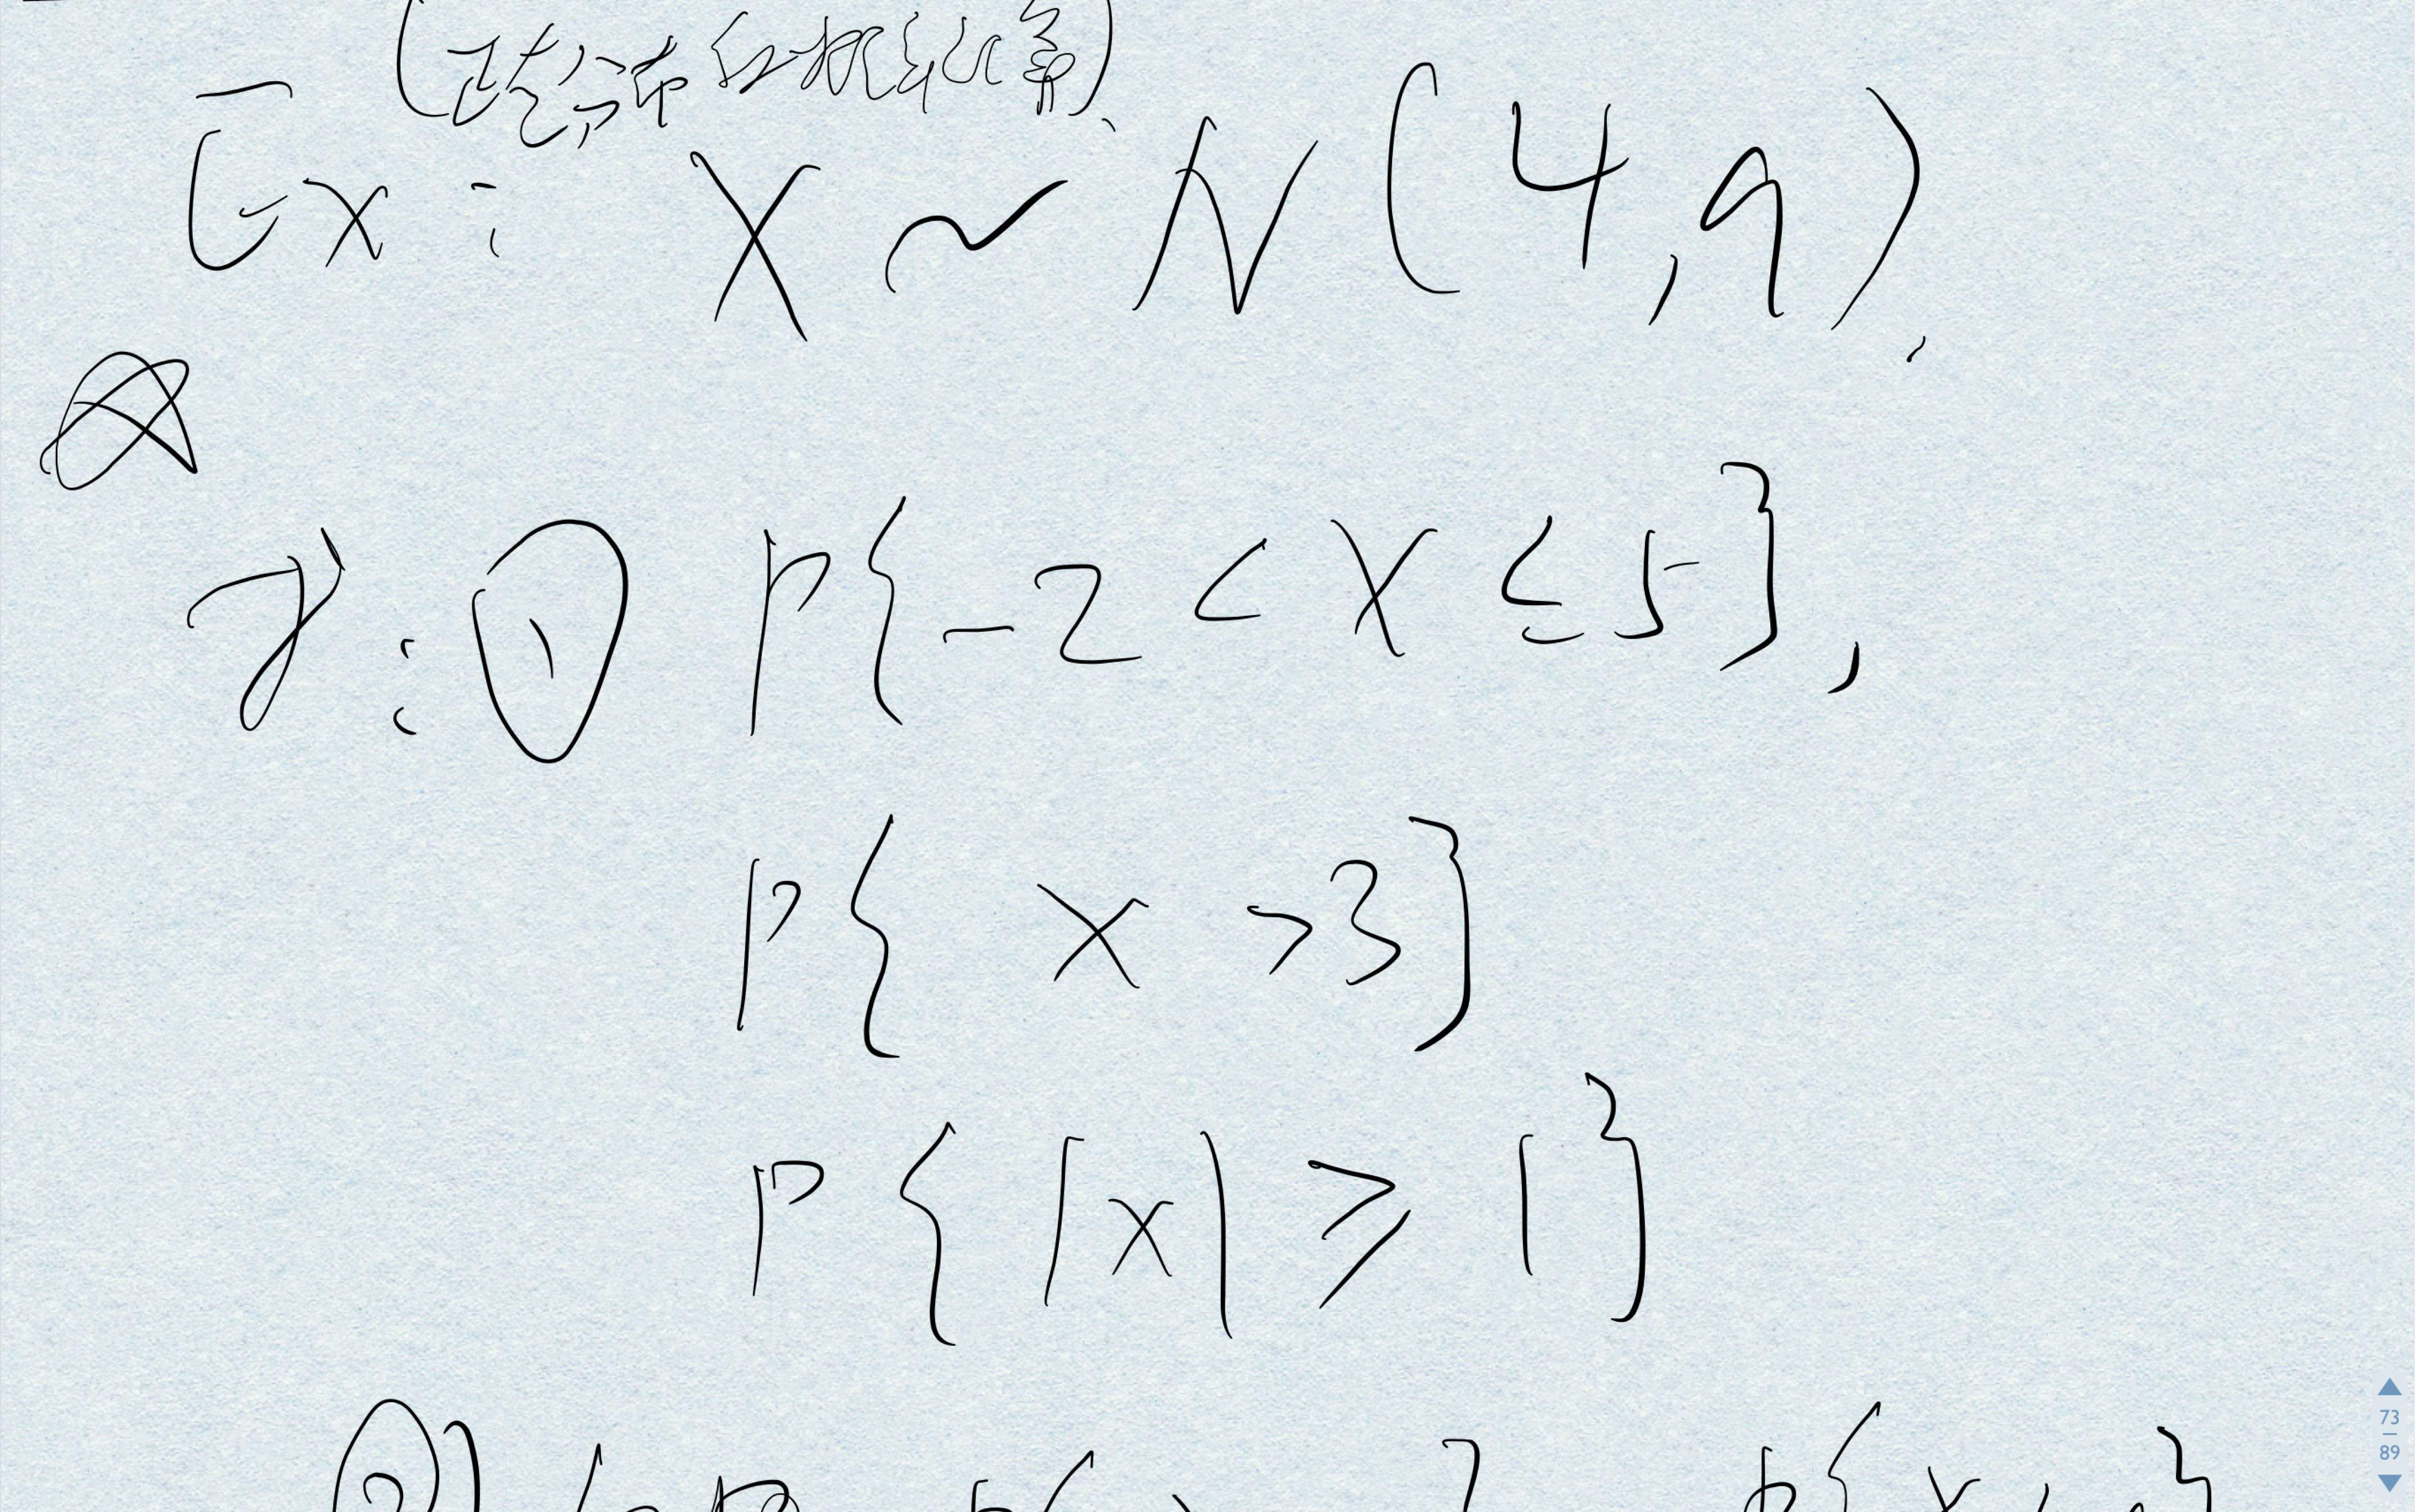 (正态分布的概率计算)
Ex: X ~ N(4,9).
求:① P{-2 < X ≤ 5},
P{ X >3}
P{ |X| ≥ 1}
73
89